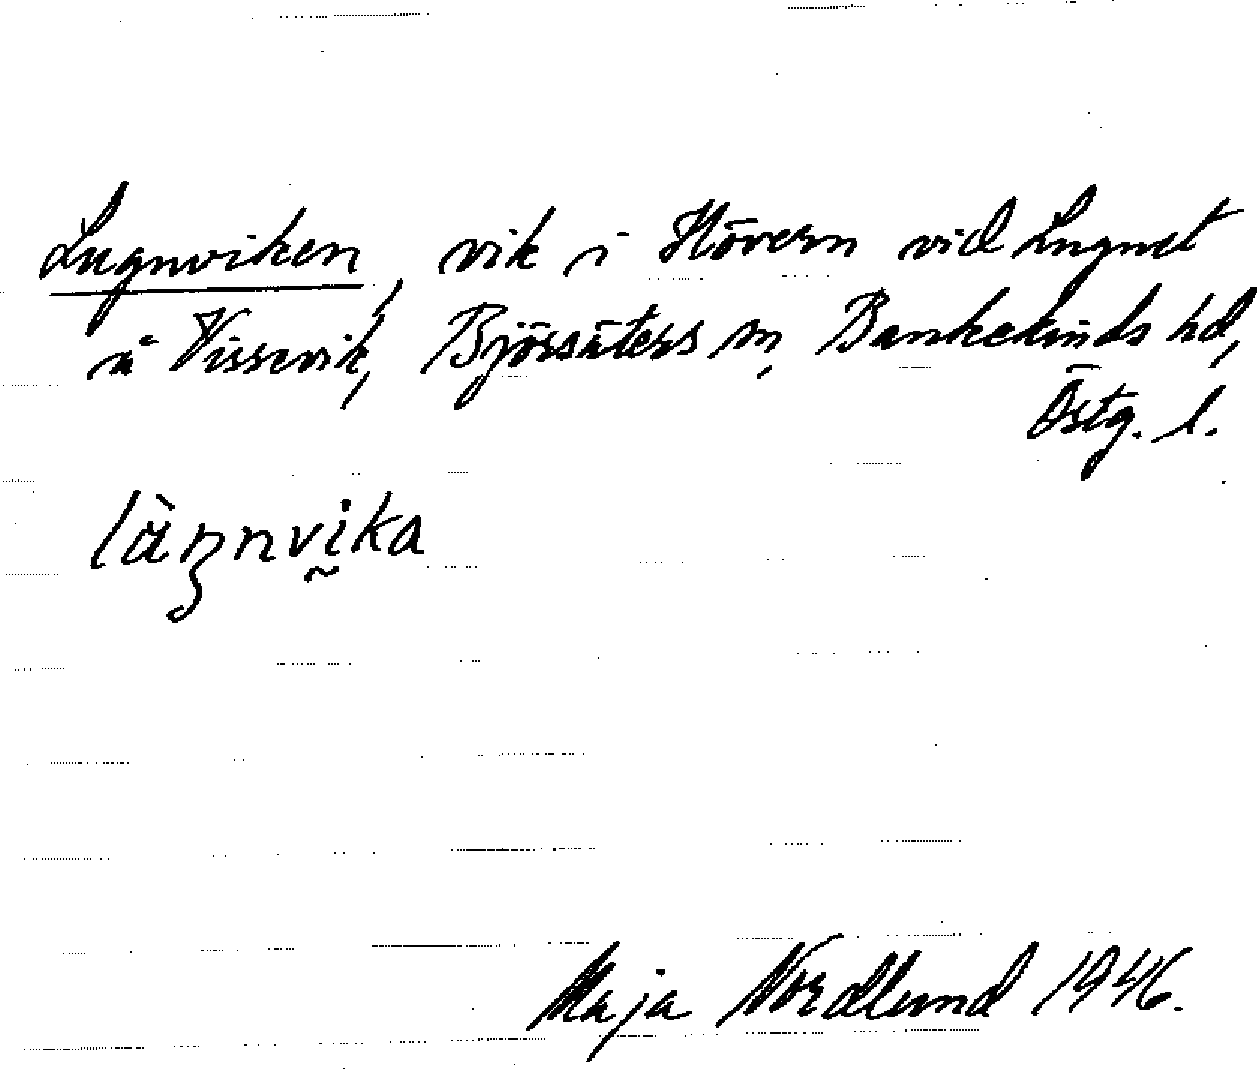 Lugnviken, vik i Hövern vid Lugnet
å Vissevik, Björsäters sn, Bankekinds hd,
Östg. l.
Maja Nordlund 1946.